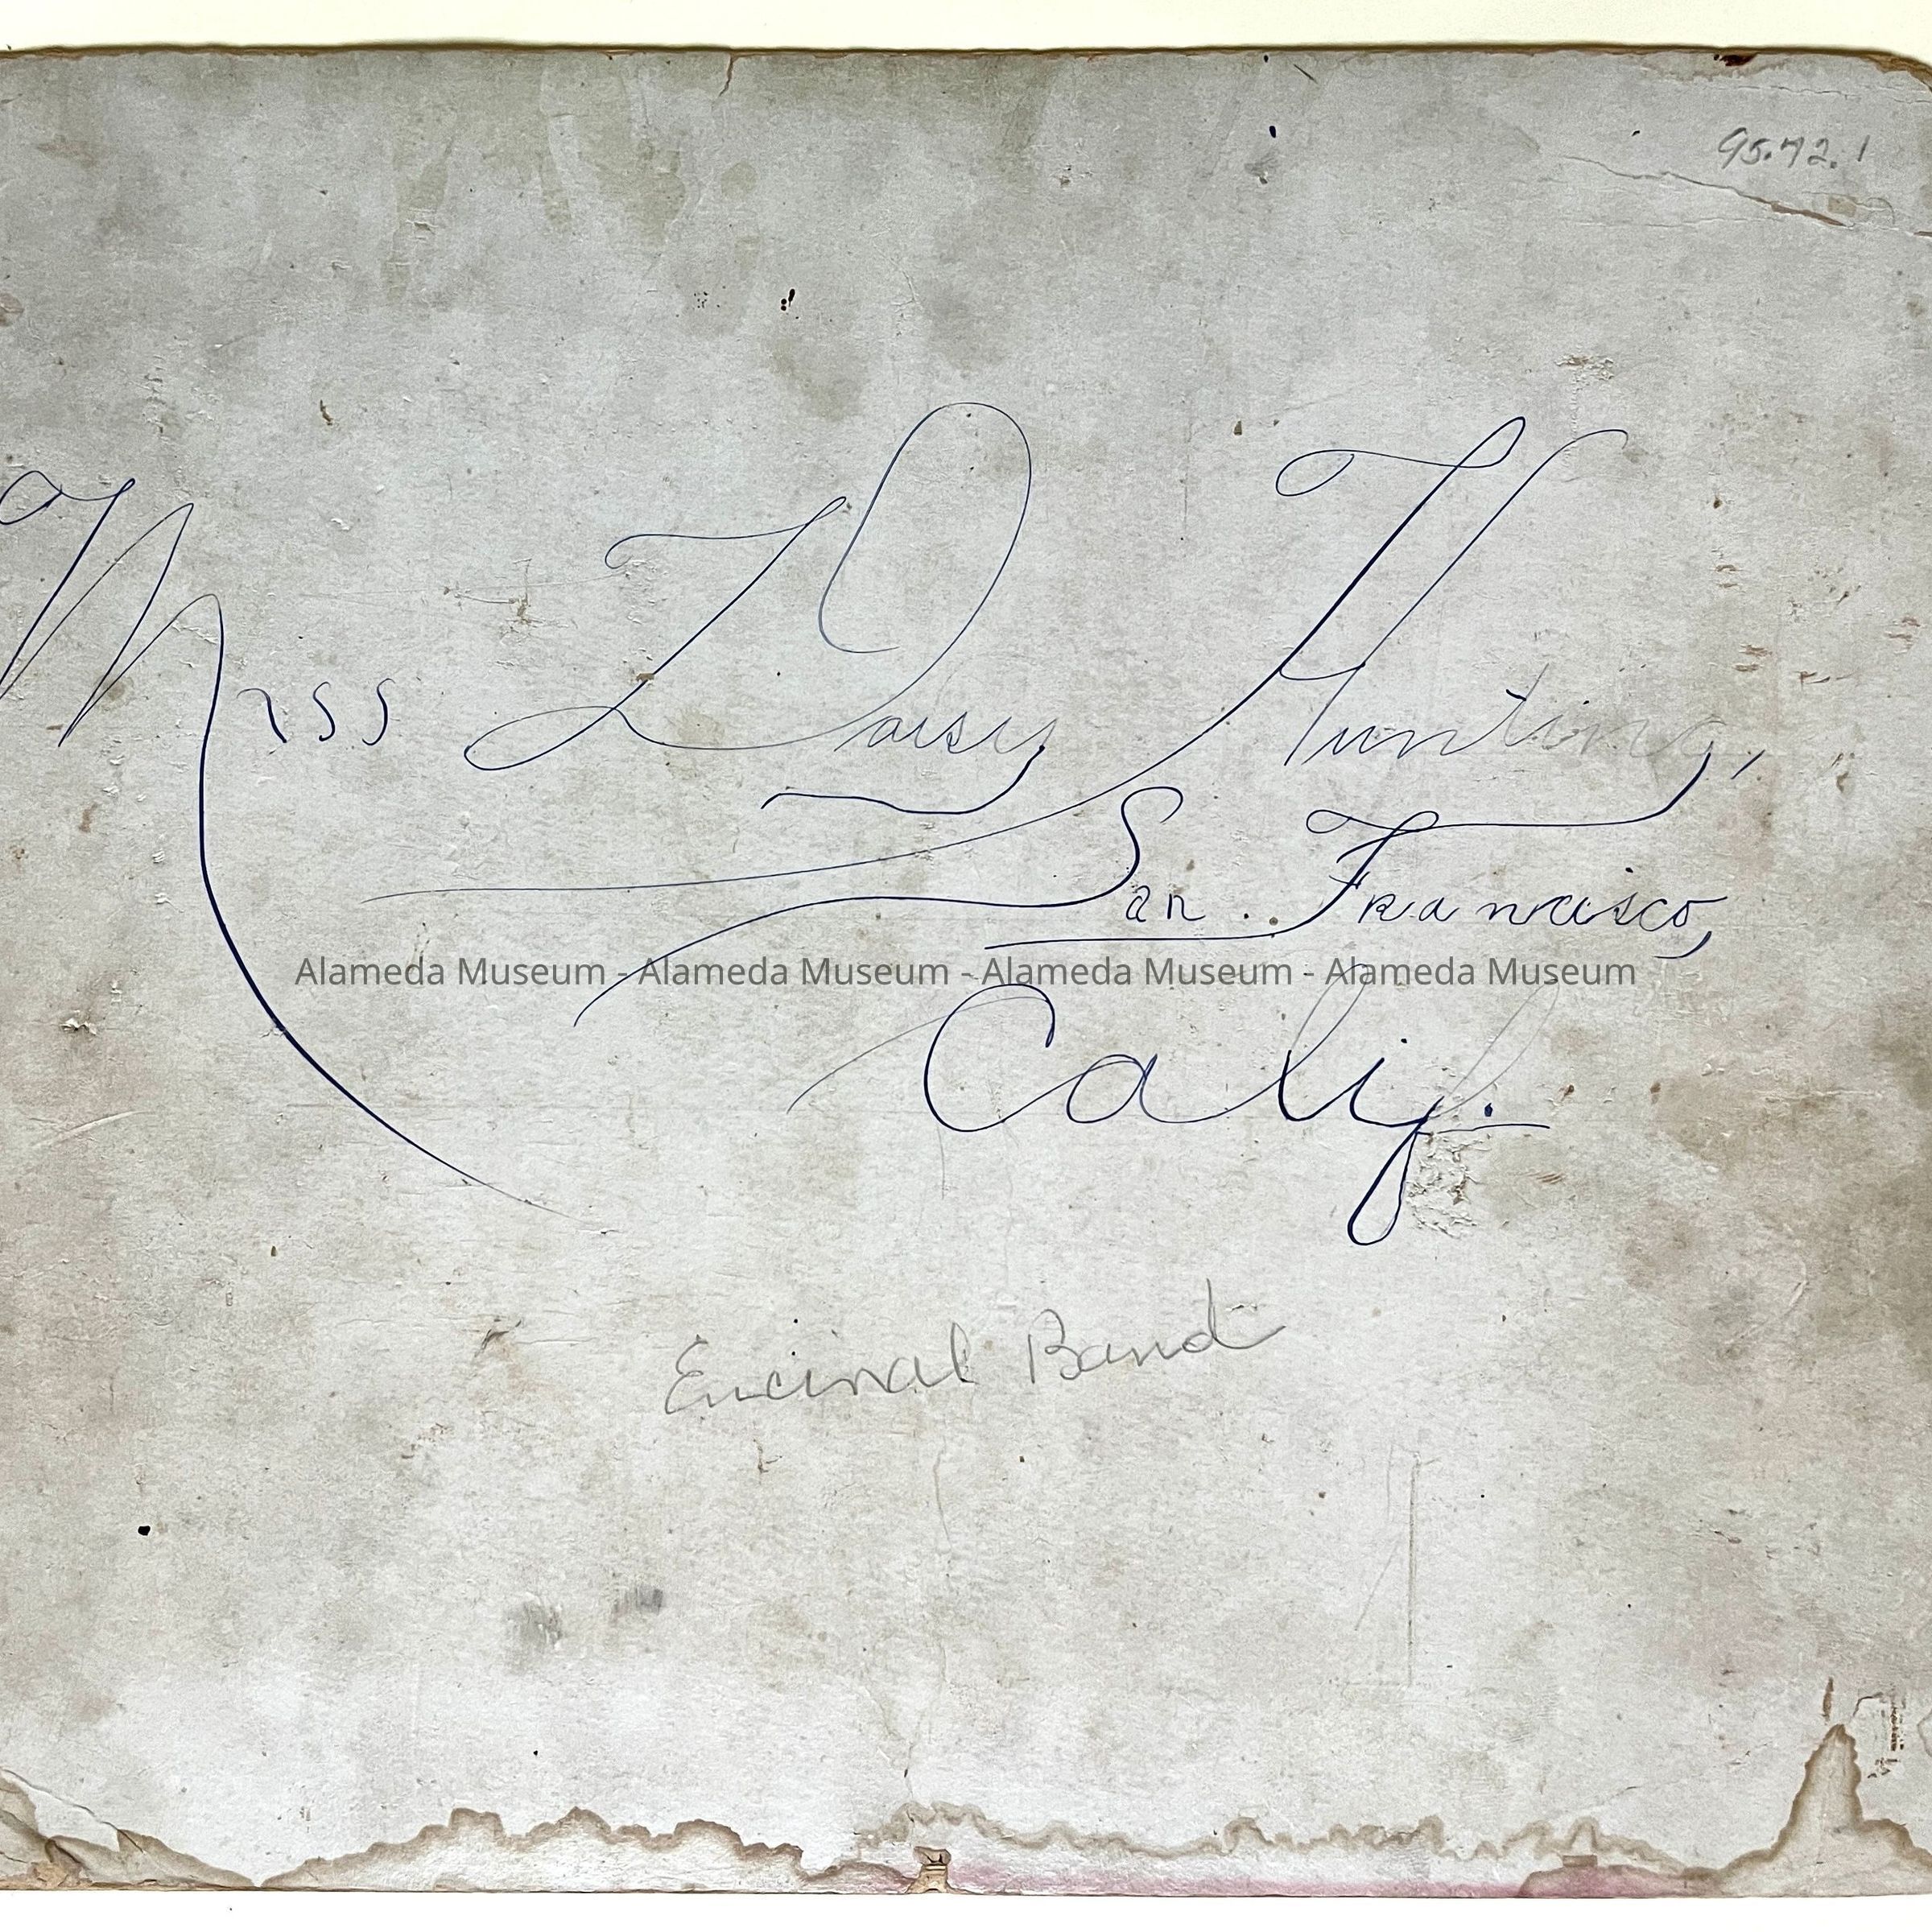 95.72.1
Miss Daisy Hunting,
San Francisco,
Alameda Museum - Alameda Museum - Alameda Museum - Alameda Museum
Calif.
Encinal Band